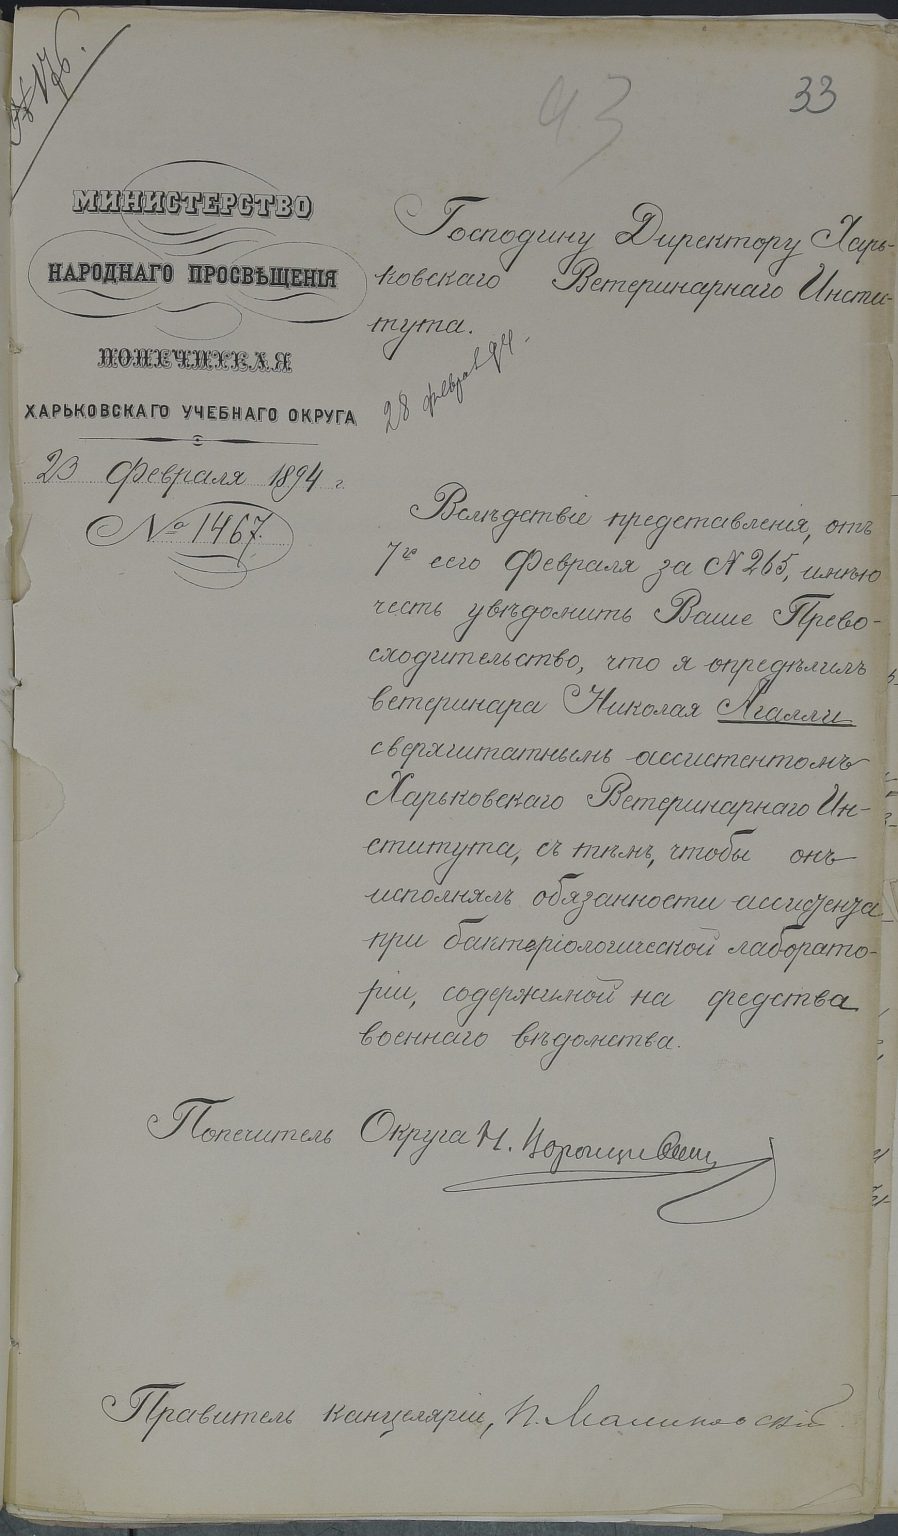 № 176.
43
33
МИНИСТЕРСТВО
НАРОДНАГО ПРОСВѢЩЕНІЯ
ХАРЬКОВСКАГО УЧЕБНАГО ОКРУГА
23 Февраля 1894 г.
№ 1467.
Господину Директору Харь-
ковскаго Ветеринарнаго Инсти-
тута.
28 феврал 94.
Вслѣдствіе представленія, отъ
7го сего Февраля за № 265, имѣю
честь увѣдомить Ваше Прево-
сходительство, что я опредѣлилъ
ветеринара Николая Агалли
сверхштатнымъ ассистентомъ
Харьковскаго Ветеринарнаго Ин-
ститута, съ тѣмъ, чтобы онъ
исполнялъ обязанности ассистента
при бактеріологической лаборато-
ріи, содержимой на средства
военнаго вѣдомства.
Попечитель Округа Н. Воронцовъ
Правитель канцеляріи, П. Малиновскій